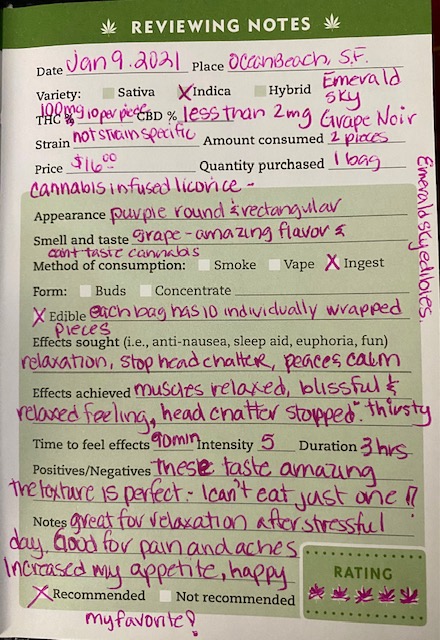 REVIEWING NOTES
Date Jan 9. 2021 Place Ocean Beach, S.F.
Variety: Sativa X Indica Hybrid Emerald
Sky
100mg 10 per piece
THC % CBD % less than 2mg Grape Noir
Strain not strain specific Amount consumed 2 pieces
Price $16.00 Quantity purchased 1 bag
cannabis infused licorice -
Emerald sky edibles.
Appearance purple round & rectangular
Smell and taste grape - amazing flavor &
cant taste cannabis
Method of consumption: Smoke Vape X Ingest
Form: Buds Concentrate
X Edible each bag has 10 individually wrapped
pieces
Effects sought (i.e., anti-nausea, sleep aid, euphoria, fun)
relaxation, stop head chatter, peaces calm
Effects achieved muscles relaxed, blissful &
relaxed feeling, head chatter stopped. thirsty
Time to feel effects 90min Intensity 5 Duration 3 hrs
Positives/Negatives these taste amazing
the texture is perfect - I can't eat just one !!
Notes great for relaxation after stressful
day. Good for pain and aches
Increased my appetite, happy
RATING
X Recommended Not recommended
my favorite!